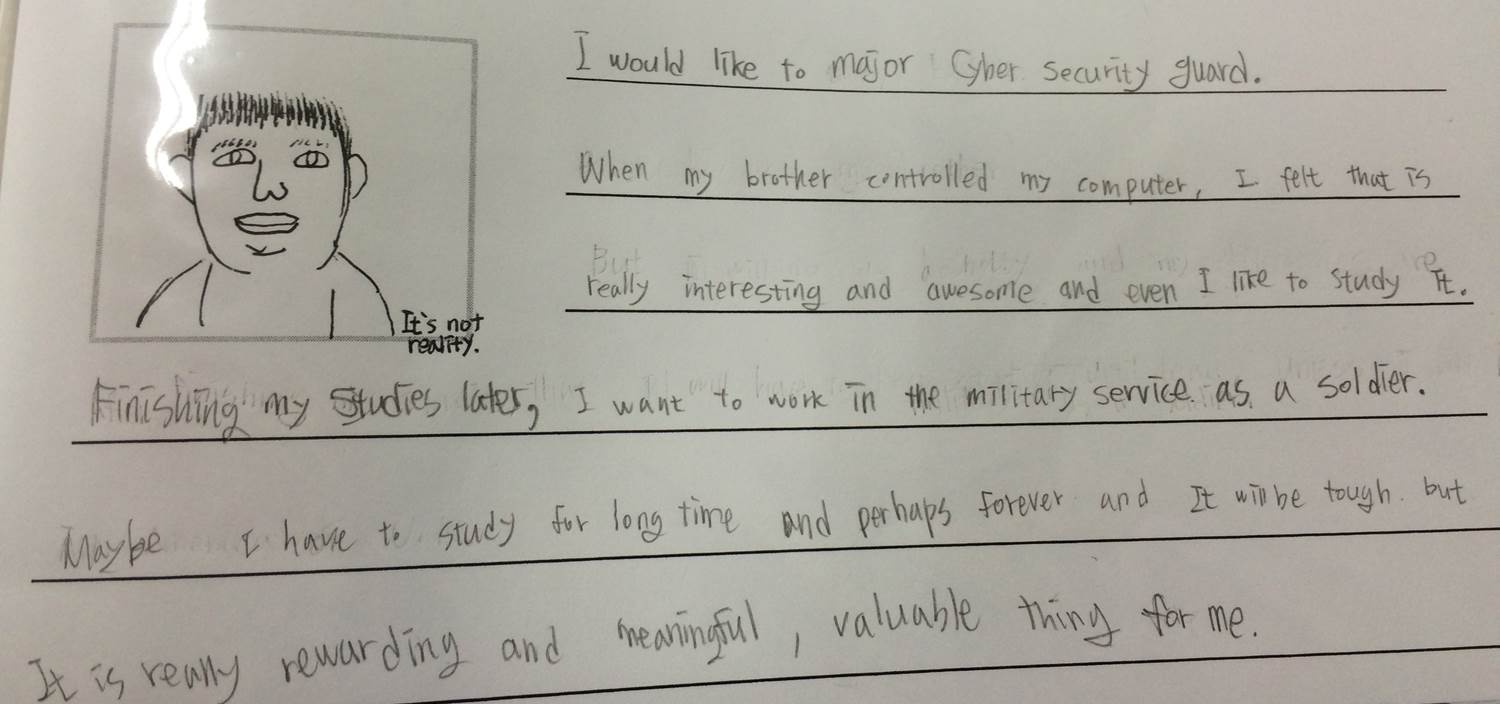 I would like to major Cyber security guard.
When my brother controlled my computer, I felt that is
really interesting and awesome and even I like to study it.
It's not
reality.
Finishing my studies later, I want to work in the military service as a soldier.
Maybe I have to study for long time and perhaps forever and It will be tough. but
It is really rewarding and meaningful, valuable thing for me.